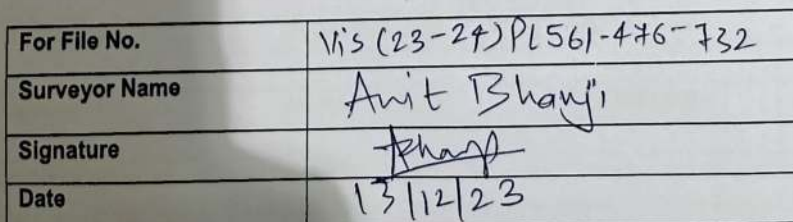 For File No. Vis (23-24) PL561-476-732
Surveyor Name Anit Bhanji
Signature
Date 13/12/23